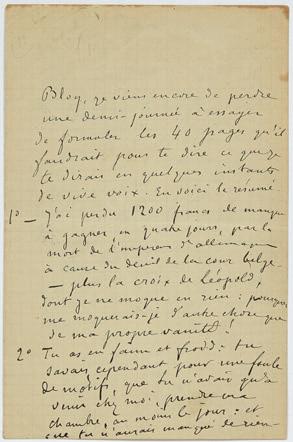 Bloy, je viens encore de perdre
une demi-journée à essayer
de formuler les 40 pages qu'il
faudrait pour te dire ce que je
te dirais en quelques instants
de vive voix. En voici le résumé
1º — J'ai perdu 1200 francs de manque
à gagner, en quatre jours, par la
mort de l'empereur d'allemagne
à cause du deuil de la cour belge
— plus la croix de Léopold,
dont je me moque en rien : pourquoi
me moquerais-je d'autre chose que
de ma propre vanité !
2º Tu as eu faim et froid : tu
savais cependant, pour une foule
de motifs, que tu n'avais qu'à
venir chez moi, prendre ma
chambre, au moins le jour : et
que tu n'aurais manqué de rien —